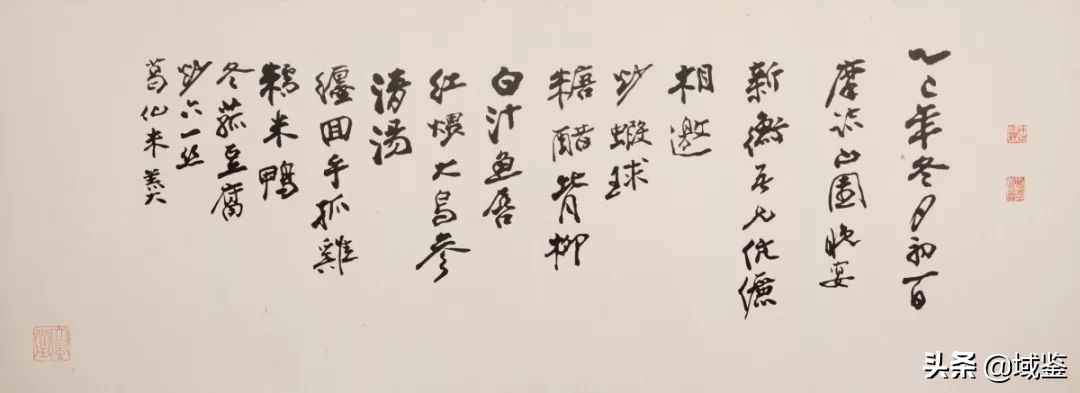 乙巳年冬月初一日
摩詰山園晚宴
新衡吾兄伉儷
相邀
炒蝦球
糖醋背柳
白汁魚唇
紅煨大烏參
清湯
纏回手抓雞
糯米鴨
冬菰豆腐
炒六一丝
葛仙米
头条 @域鉴